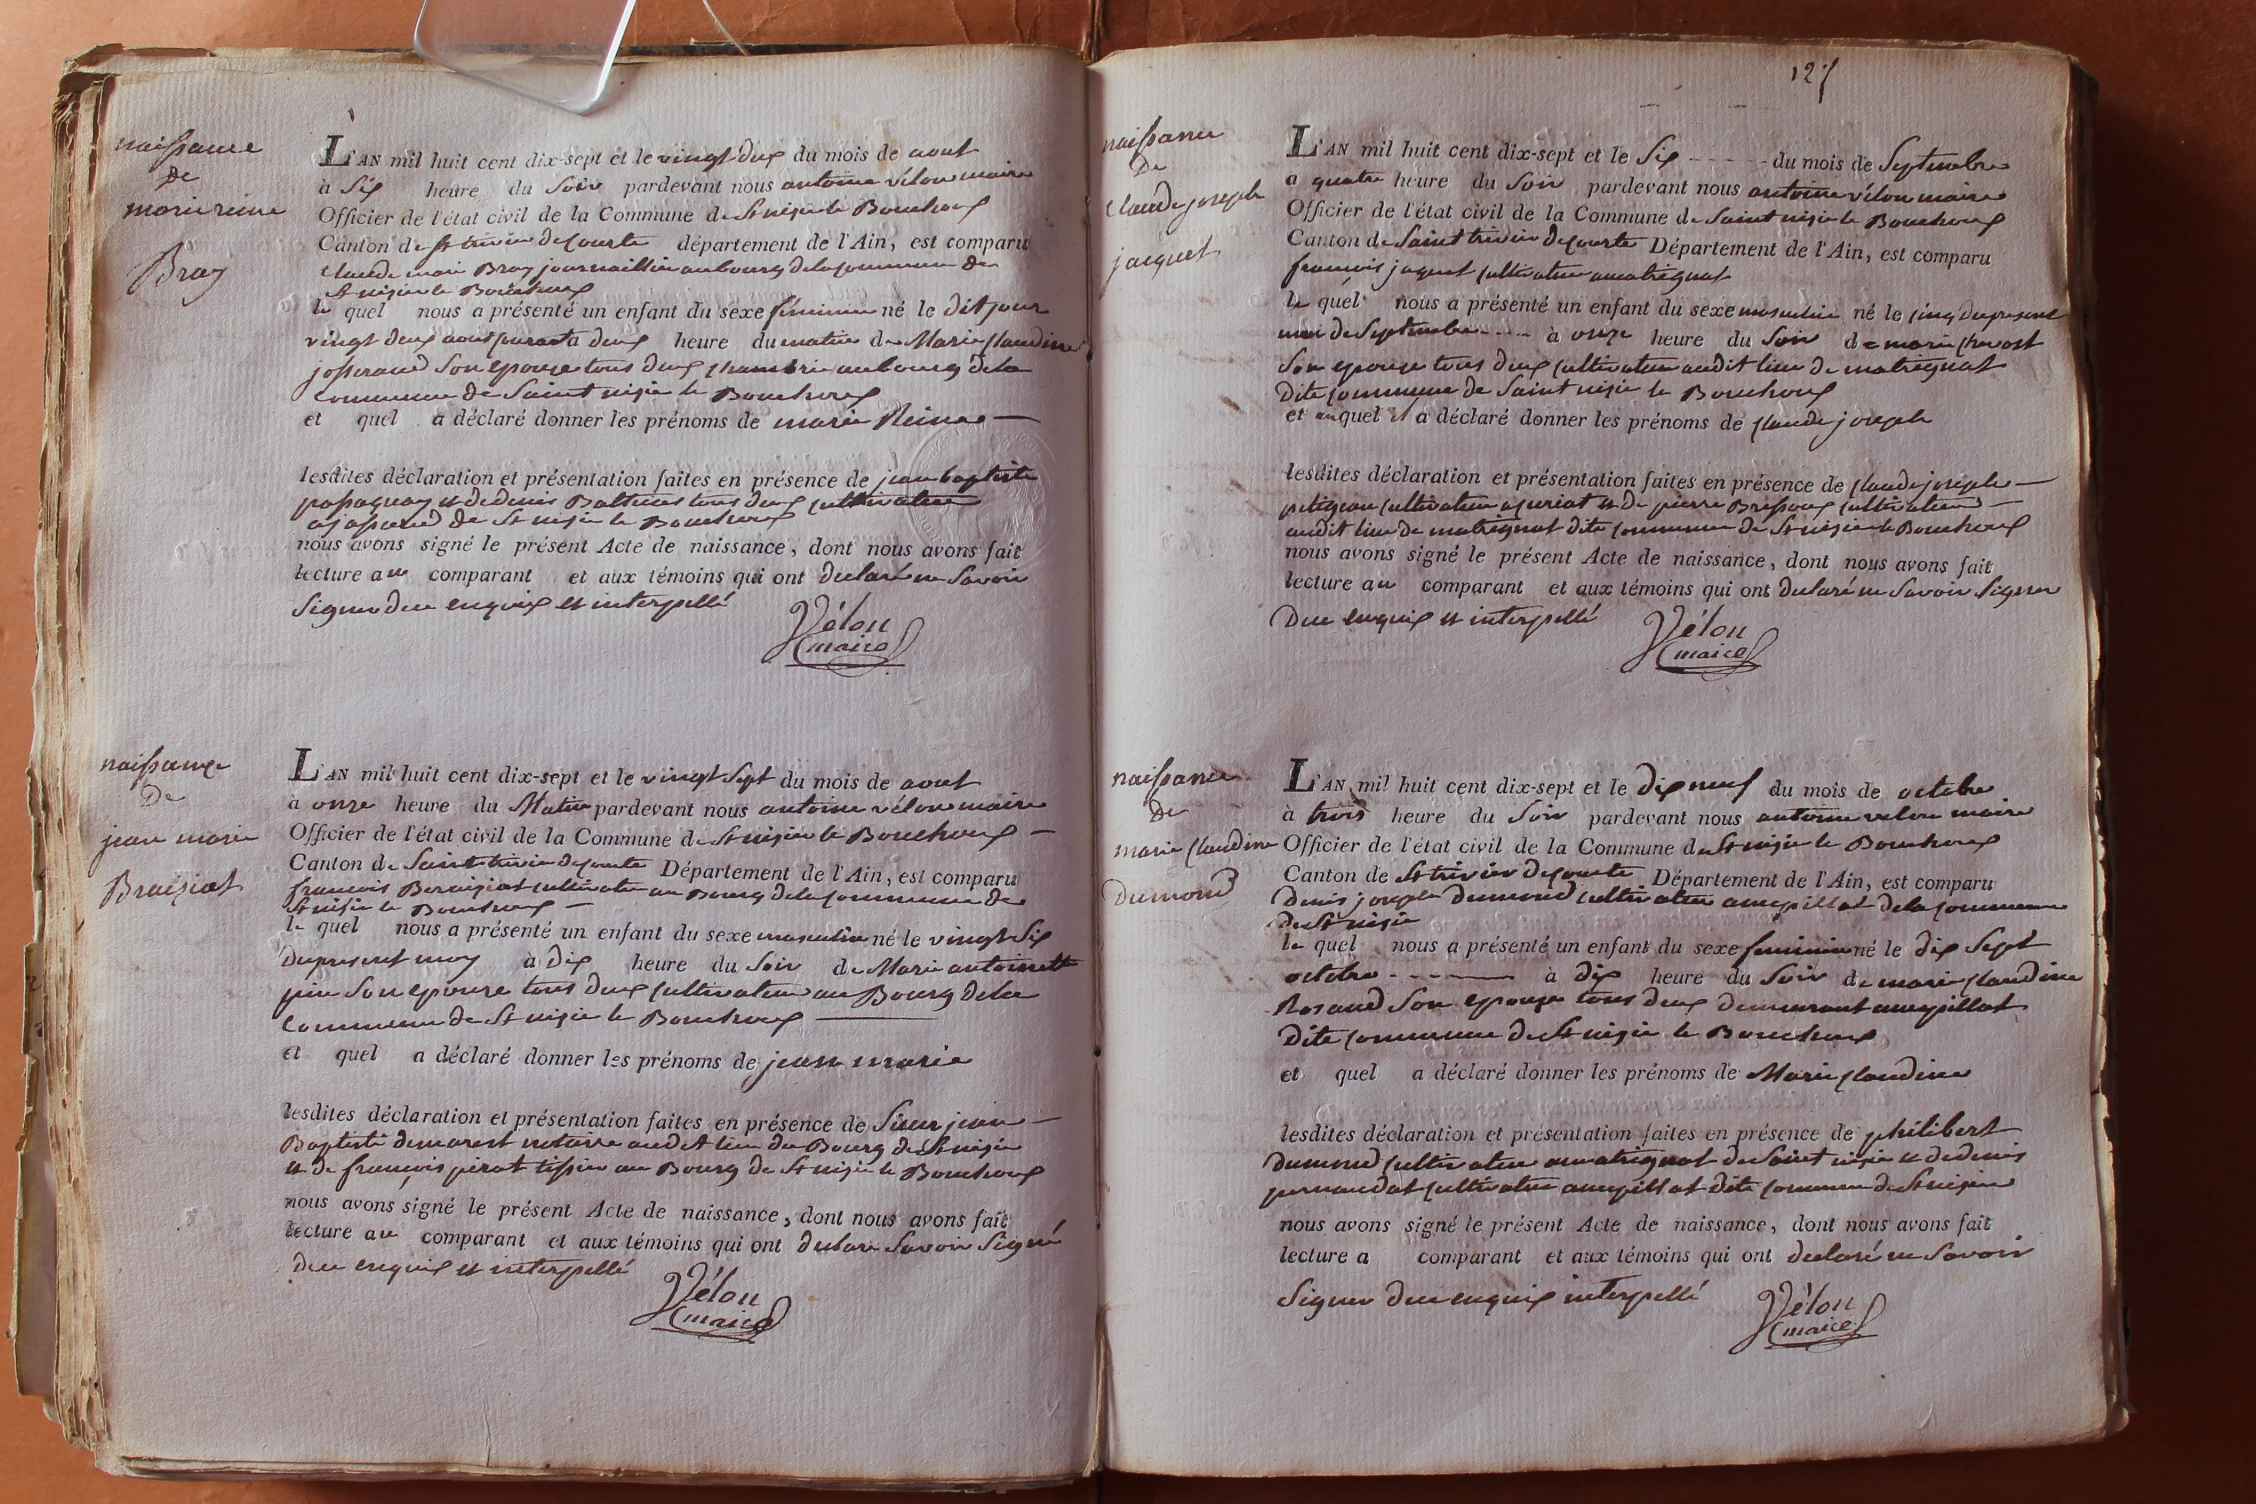 naissance
de
marie reine
Bray
L'AN mil huit cent dix-sept et le vingt deux du mois de aout
à Six heure du Soir pardevant nous antoine vélon maire
Officier de l'état civil de la Commune de St nizier le Bouchoux
Canton de St trivier de Courte département de l'Ain, est comparu
claude marie Bray journaillier au bourg de la commune de
St nizier le Bouchoux
le quel nous a présenté un enfant du sexe féminin né le dit jour
vingt deux aout courant à deux heure du matin de Marie Claudine
josserand Son epouse tous deux au bourg de la
Commune de Saint nizier le Bouchoux
et quel a déclaré donner les prénoms de marie Reine
lesdites déclaration et présentation faites en présence de jean baptiste
et de denis tous deux cultivateur
de St nizier le Bouchoux
nous avons signé le présent Acte de naissance, dont nous avons fait
lecture au comparant et aux témoins qui ont declaré ne Savoir
Signer de ce enquis et interpellé
Vélon
maire
naissance
De
jean marie
Braiziat
L'AN mil huit cent dix-sept et le vingt Sept du mois de aout
à onze heure du Matin pardevant nous antoine vélon maire
Officier de l'état civil de la Commune de St nizier le Bouchoux
Canton de Saint trivier de Courte Département de l'Ain, est comparu
francois Beraiziat cultivateur au Bourg de la commune de
St nizier le Bouchoux
le quel nous a présenté un enfant du sexe masculin né le vingt Six
du present moy à dix heure du Soir de Marie antoinette
Son epouse tous deux cultivateur au Bourg de la
Commune de St nizier le Bouchoux
et quel a déclaré donner les prénoms de jean marie
lesdites déclaration et présentation faites en présence de Sieur jean
Baptiste demarest notaire audit lieu du Bourg de St nizier
et de françois pirat tissier au Bourg de St nizier le Bouchoux
nous avons signé le présent Acte de naissance, dont nous avons fait
lecture au comparant et aux témoins qui ont declaré Savoir Signé
de ce enquis et interpellé
Vélon
maire
127
naissance
De
Claude joseph
jacquet
L'AN mil huit cent dix-sept et le Six du mois de Septembre
a quatre heure du Soir pardevant nous antoine vélon maire
Officier de l'état civil de la Commune de Saint nizier le Bouchoux
Canton de Saint trivier de Courte Département de l'Ain, est comparu
francois jaquet cultivateur a matrignat
le quel nous a présenté un enfant du sexe masculin né le cinq du present
mois de Septembre à onze heure du Soir de marie chevost
Son epouse tous deux cultivateur audit lieu de matrignat
Dite commune de Saint nizier le Bouchoux
et auquel il a déclaré donner les prénoms de claude joseph
lesdites déclaration et présentation faites en présence de claude joseph
petitjean cultivateur a curiat et de pierre Bressoux cultivateur
audit lieu de matrignat dite commune de St nizier le Bouchoux
nous avons signé le présent Acte de naissance, dont nous avons fait
lecture au comparant et aux témoins qui ont declaré ne Savoir Signer
De ce enquis et interpellé
Vélon
maire
naissance
de
marie Claudine
Dumond
L'AN mil huit cent dix-sept et le dix neuf du mois de octobre
à trois heure du Soir pardevant nous antoine velon maire
Officier de l'état civil de la Commune de St nizier le Bouchoux
Canton de St trivier de Courte Département de l'Ain, est comparu
Denis joseph Dumond cultivateur au epillat de la commune
de St nizier
le quel nous a présenté un enfant du sexe feminin né le dix Sept
octobre à dix heure du Soir de marie claudine
Rosand Son epouse tous deux demeurant au epillat
Dite commune de St nizier le Bouchoux
et quel a déclaré donner les prénoms de Marie Claudine
lesdites déclaration et présentation faites en présence de philibert
dumond cultivateur a matrignat de Saint nizier et de denis
cultivateur au epillat dite commune de St nizier
nous avons signé le présent Acte de naissance, dont nous avons fait
lecture a comparant et aux témoins qui ont declaré ne Savoir
Signer de ce enquis interpellé
Vélon
maire